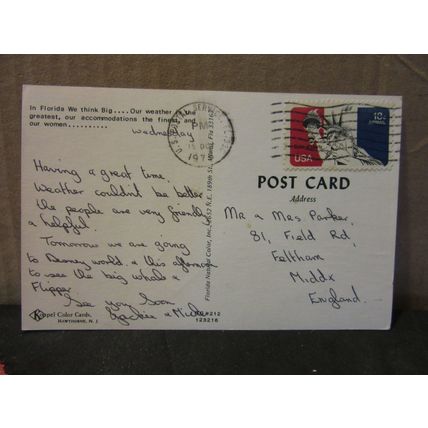 In Florida We think Big....Our weather is the
greatest, our accommodations the finest, and
our women..........
Wednesday
Having a great time.
Weather couldn't be better
the people are very friendly
& helpful.
Tomorrow we are going
to Disney world. & this afternoon
to see the big whale &
Flipper
See you Soon
Jackie & Mick
Color Cards,
HAWTHORNE, N. J.
123216
Florida Natural Color, Inc.
U.S. POSTAL SERVICE
PM
15 OCT
USA
POST CARD
Address
Mr & Mrs Parker.
81, Field Rd,
Feltham
Middx
England.